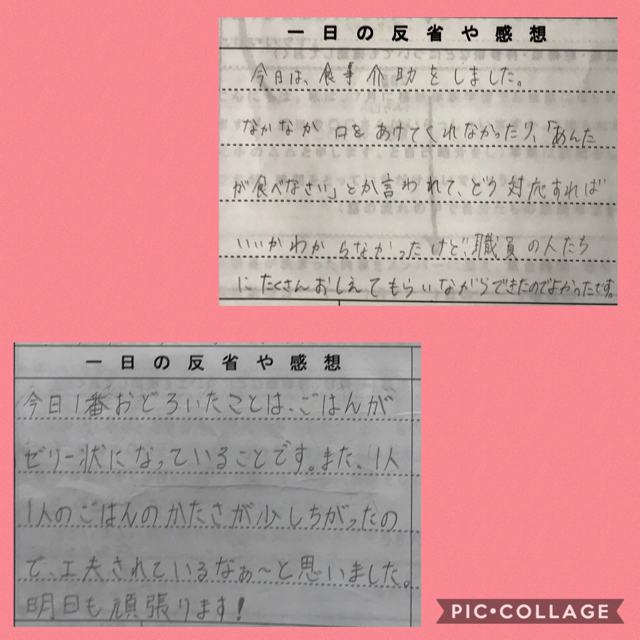 一日の反省や感想
今日は、食事介助をしました。
なかなか口をあけてくれなかったり、「あんた
が食べなさい」とか言われて、どう対応すれば
いいかわからなかったけど、職員の人たち
にたくさんおしえてもらいながらできたのでよかったです。
一日の反省や感想
今日1番おどろいたことは、ごはんが
ゼリー状になっていることです。また、1人
1人のごはんのかたさが少しちがったの
で、工夫されているなぁ〜と思いました。
明日も頑張ります!
PIC•COLLAGE